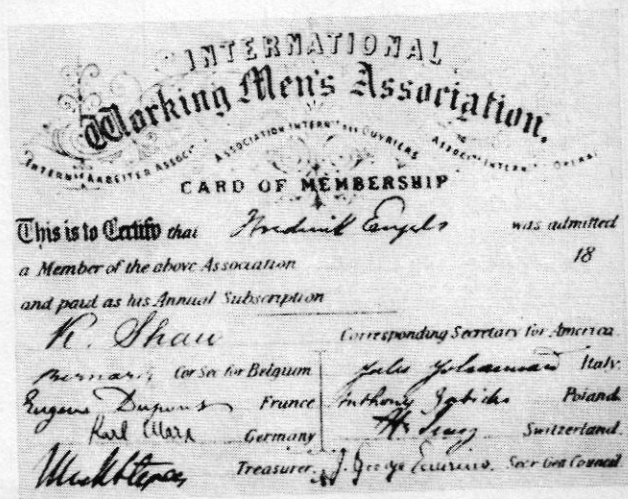 INTERNATIONAL
Working Men's Association.
INTERN. ARBEITER ASSOC. ASSOCIATION INTERN OUVRIERS ASSOC INTERN OPERAI
CARD OF MEMBERSHIP
This is to Certify that Frederick Engels was admitted
a Member of the above Association 18
and paid as his Annual Subscription
R. Shaw Corresponding Secretary for America.
Bernard Cor Sec for Belgium Jules Johannard Italy.
Eugene Dupont France Anthony Zabicki Poland.
Karl Marx Germany H. Jung Switzerland.
Treasurer. J. George Eccarius. Secr Gen Council.